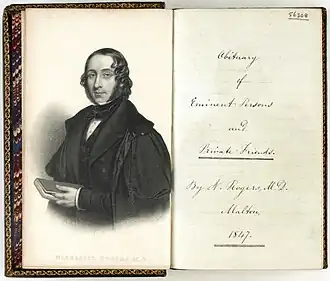 56308
Obituary
of
Eminent Persons
and
Private Friends.
By N. Rogers, M.D.
Malton
1847.
ROGERS M.D.